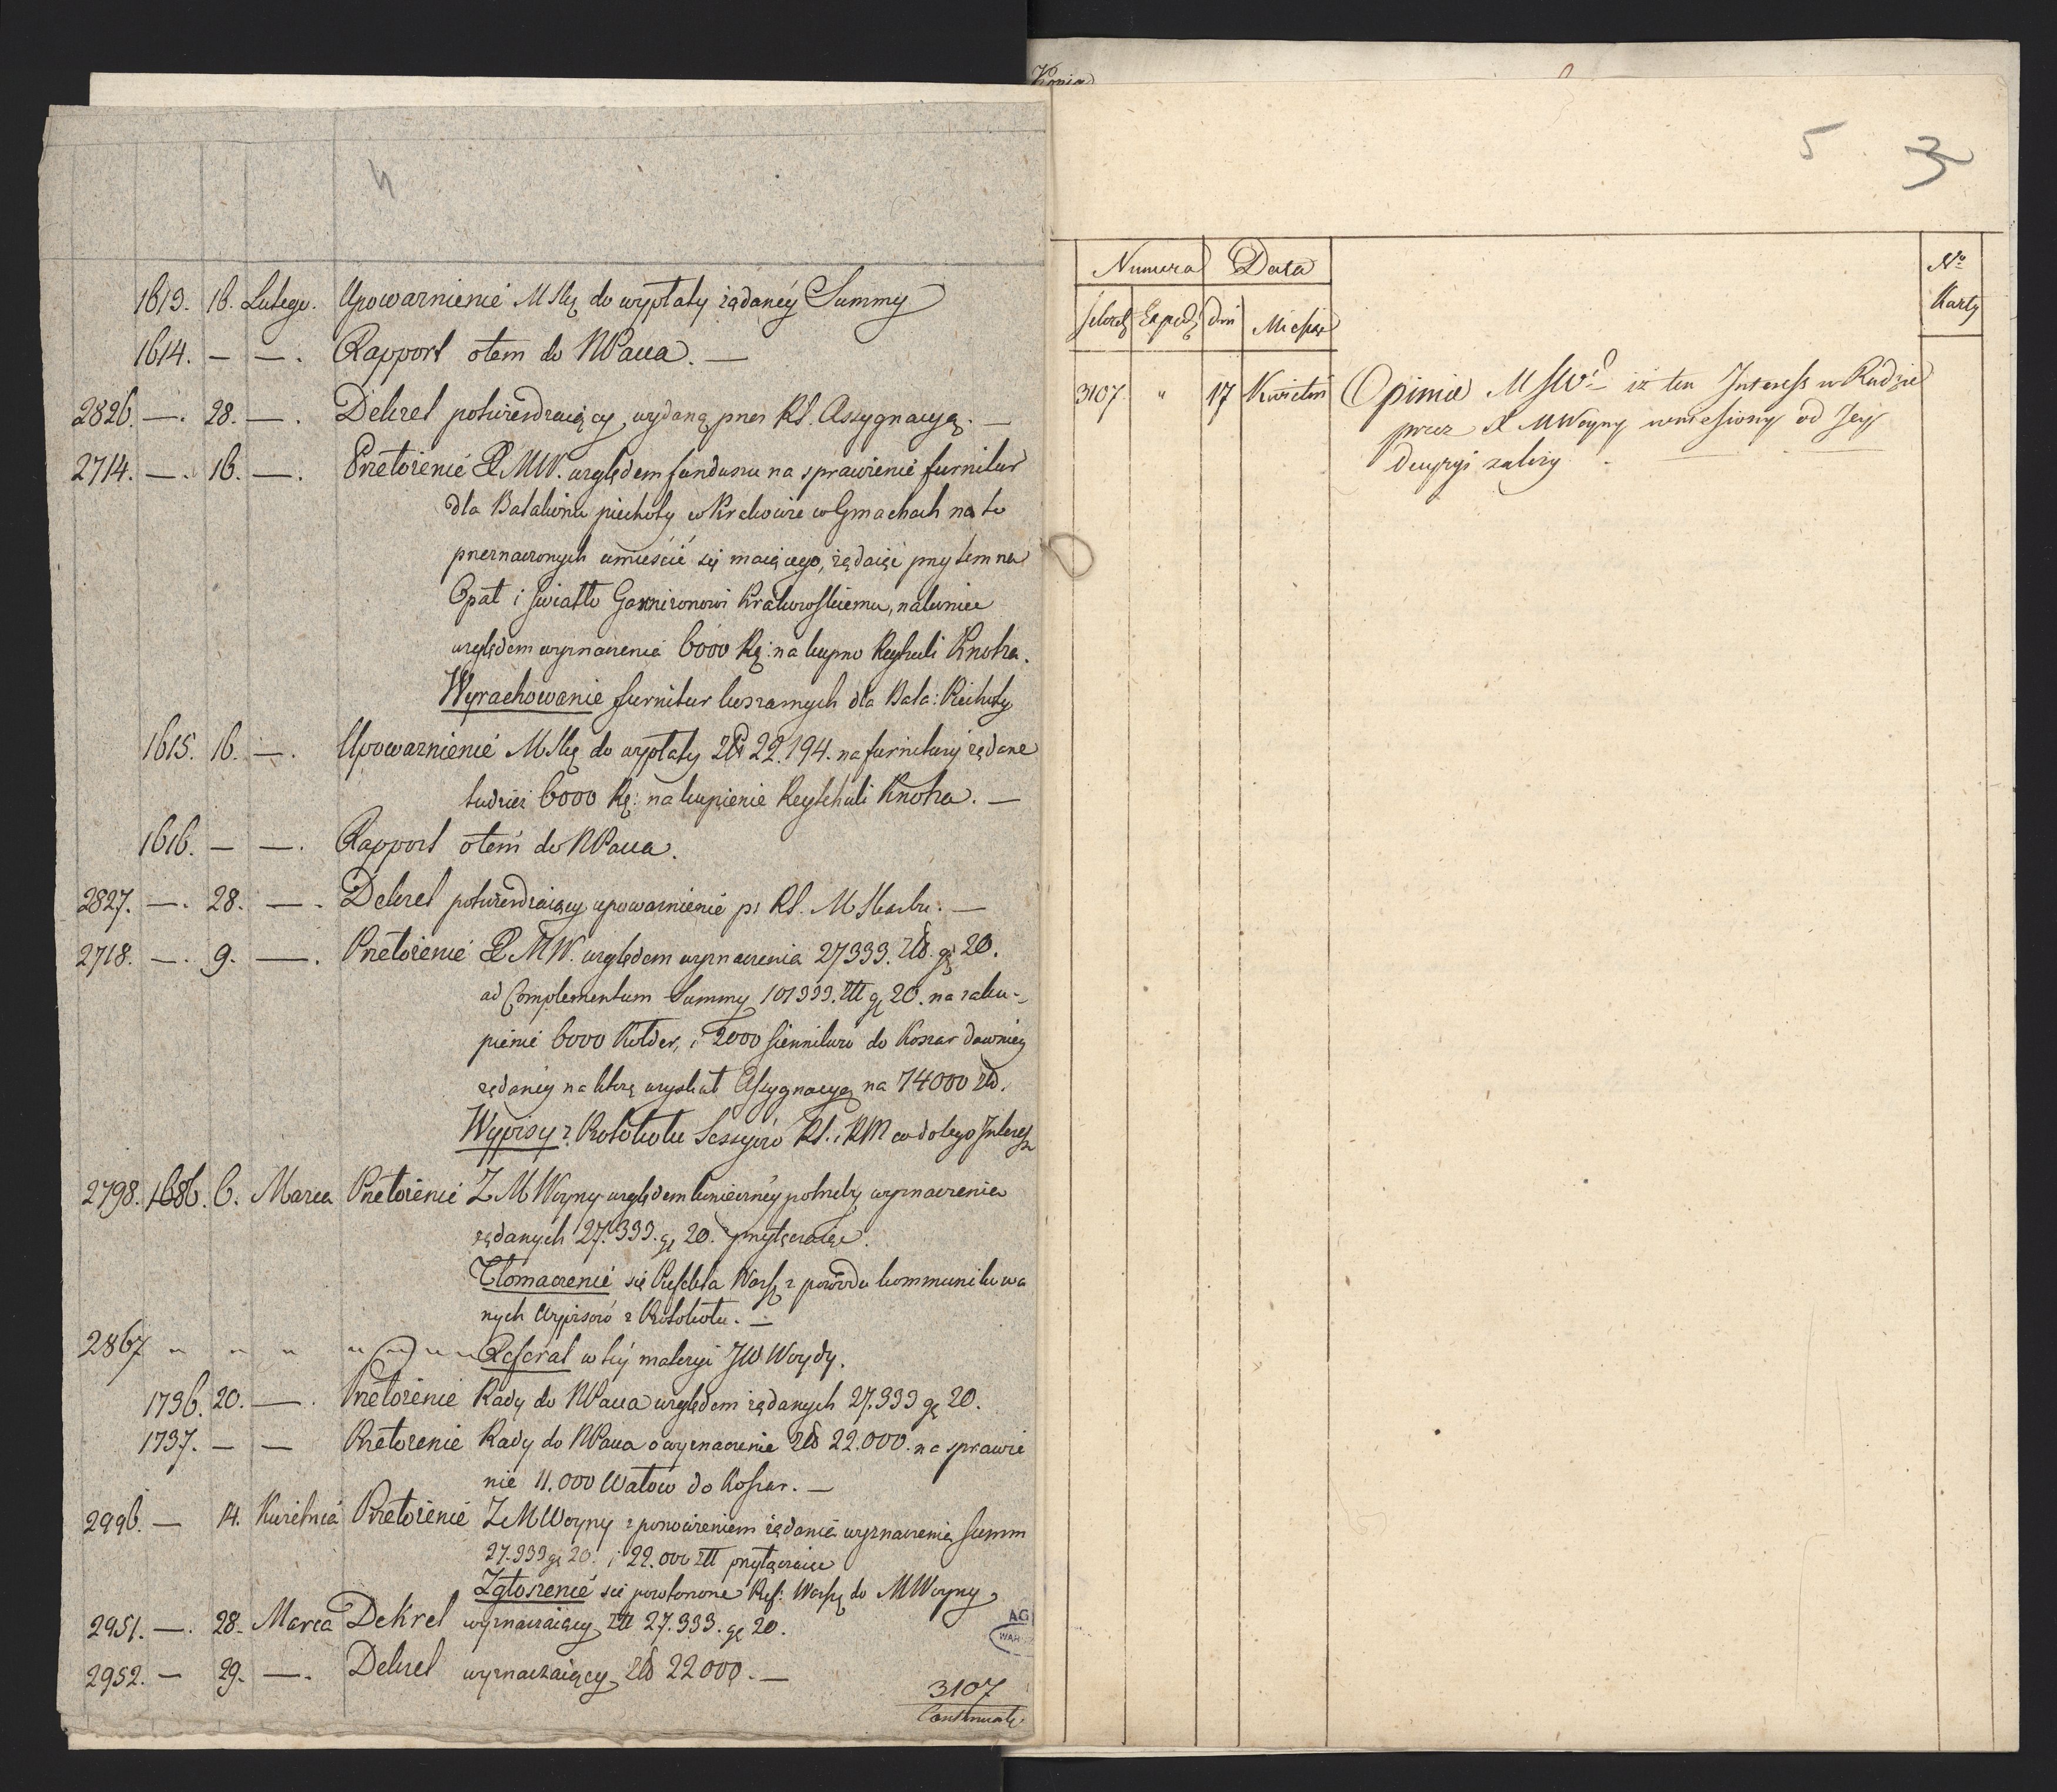 4
1613. 16. Lutego. Upoważnienié MSkę do wypłaty żądanéy Summy
1614. — —. Rapport o tem do NPana. —
2826. —. 28. —. Dekret potwierdzaiący wydaną przez Rd. Assygnacyą. —
2714. —. 16. —. Przełożenié ZMW. względem funduszu na sprawienié furnitur
dla Bataliona piechoty w Krakowie w Gmachach na to
przeznaczonych umieścić się maiącego, żądaiąc przytem na
Opał i światło Garnizonowi Krakowskiemu, nakoniec
względem wyznaczenia 6000 Rę: na kupno Reytszuli Knotza.
Wyrachowanie furnitur koszarnych dla Bata: Piechoty
1615. 16. —. Upoważnienié MSkę do wypłaty Złł 22.194. na furnitury żądane
tudzież 6000 Rę: na kupienie Reytchuli Knotza. —
1616. — —. Rapport o tem do NPana.
2827. —. 28. —. Dekret potwierdzaiący upoważnienié pr Rd. MSkarbu. —
2718. —. 9. —. Przełożenié ZMW. względem wyznaczenia 27333. Złł. gr 20.
ad Complementum Summy 101333. Złł gr 20. na zaku-
pienié 6000 Kołder, i 2000 siennikow do Koszar dawniey
żądaney na którą uzyskał Assygnacyą na 74000 Złł.
Wypisy z Protokołu Sessyiów Rd. i RM co do tego Interess
2798. 1686. 6. Marca Przełożenié ZMWoyny względem koniecznéy potrzeby wyznaczenia
żądanych 27.333. gr 20. przyłączaiąc.
Tłomaczenié się Prefekta Warsz z powodu kommunikowa
nych Wypisow z Protokołu. —
2867 " " " " " " Referat w téy materyi JW Woydy.
1736. 20. —. Przełożenié Rady do NPana względem żądanych 27.333 gr 20.
1737. — — Przełożenié Rady do NPana o wyznaczenie Złł 22.000. na sprawie
nie 11.000 Wałow do Koszar. —
2996. — 14. Kwietnia Przełożenié ZMWoyny z ponowieniem żądania wyznaczenia Summ
27.333 gr 20. i 22.000 Złł przyłączaiąc
Zgłoszenié się powtorzone Pref: Warsz do MWoyny
2951. —. 28. Marca Dekret wyznaczaiący Złł 27.333. gr 20.
2952. — 29. —. Dekret wyznaczaiący Złł 22000. —
3107
Continuatur
AG
WAR
5 3
Numera Data No
Karty
Sekret Exped dni Miesiąc
3107. " 17 Kwietnia Opinia MSWo iż ten Interess w Radzie
przez MWoyny wniesiony od Jey
Decyzyi zależy. — —